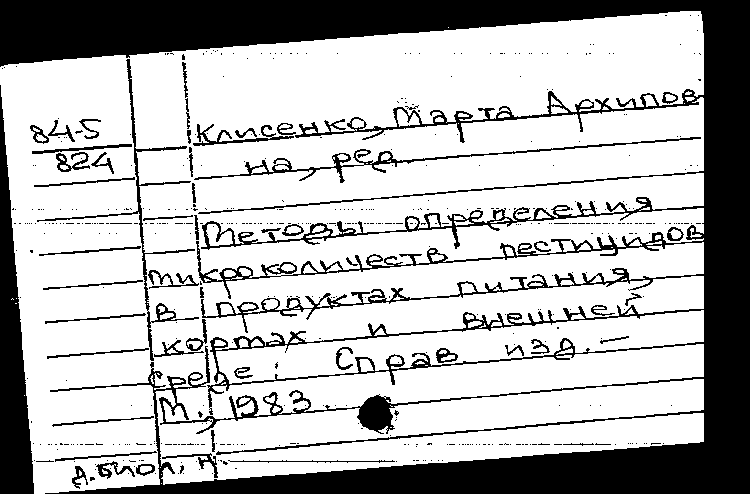 84-5
824
Клисенко, Марта Архипов-
на, ред.
Методы определения
микроколичеств пестицидов
в продуктах питания,
кормах и внешней
среде: Справ изд. —
М., 1983.
д. биол. н.